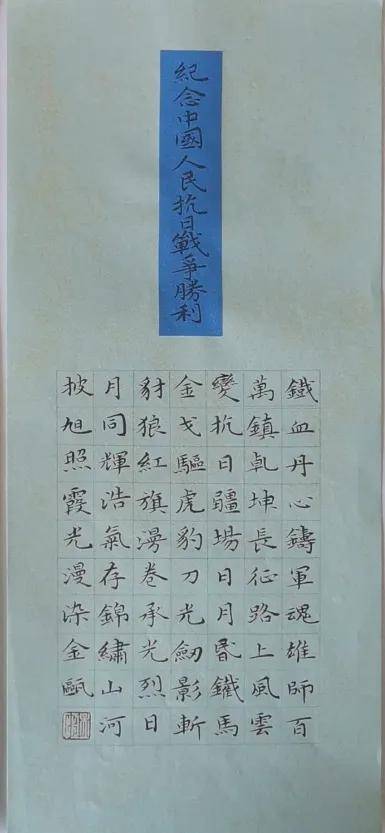 紀念中國人民抗日戰爭勝利
鐵血丹心鑄軍魂雄師百
萬鎮乹坤長征路上風雲
變抗日疆場日月昬鐵馬
金戈驅虎豹刀光劍影斬
豺狼紅旗漫卷承光烈日
月同輝浩氣存錦繡山河
披旭照霞光漫染金甌